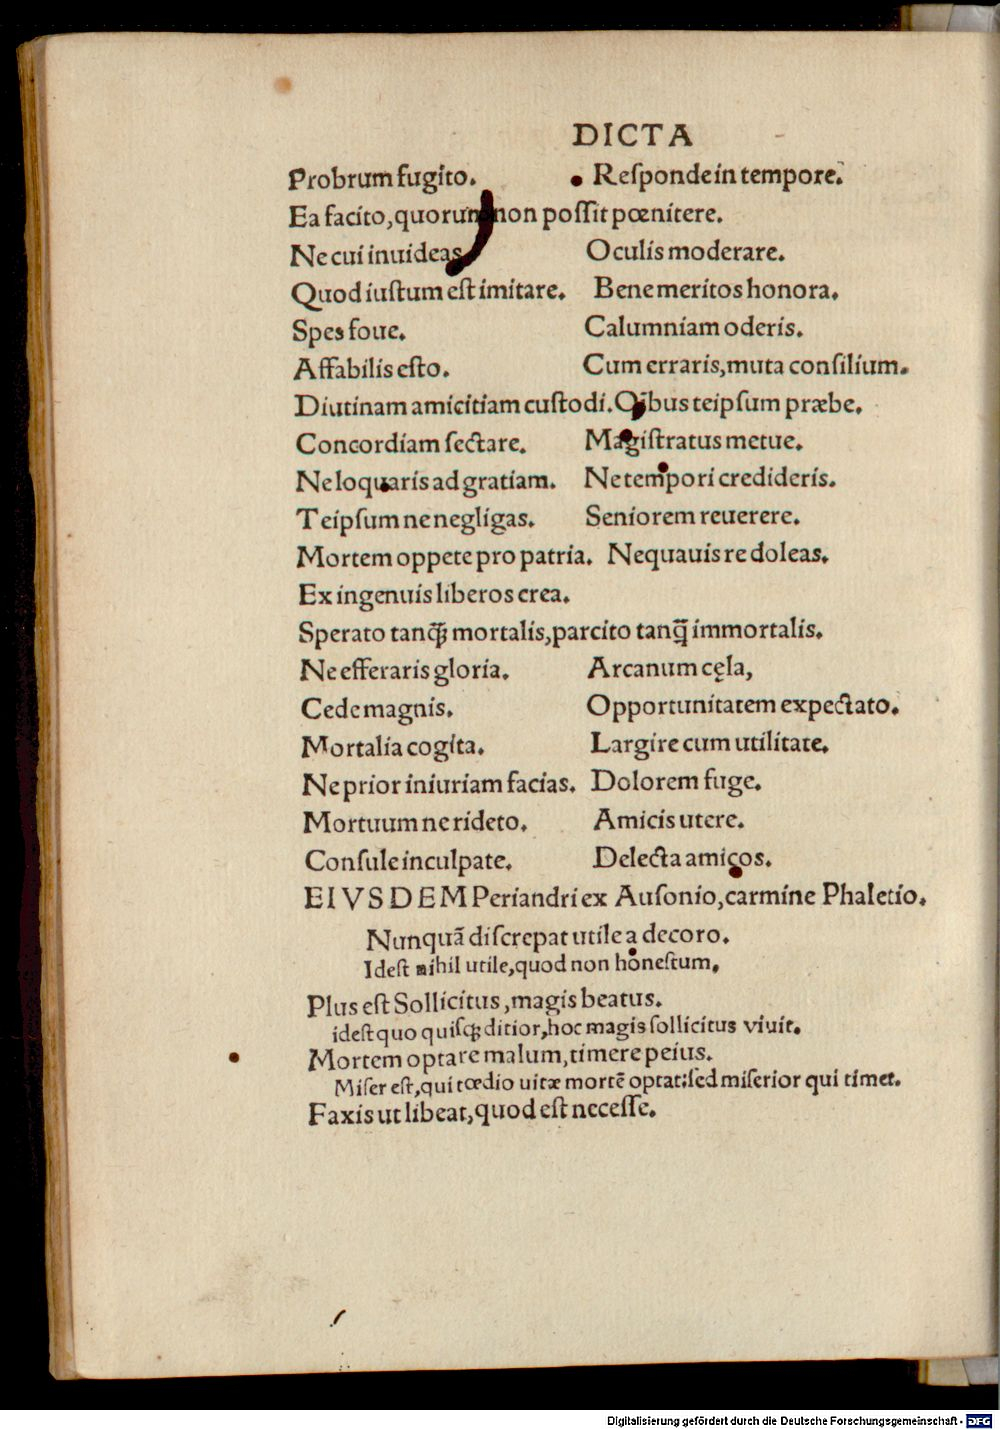 DICTA
Probrum fugito. Reſponde in tempore.
Ea facito, quorum non poſſit pœnitere.
Ne cui inuideas Oculis moderare.
Quod iuſtum eſt imitare. Benemeritos honora.
Spes foue. Calumniam oderis.
Affabilis eſto. Cum erraris, muta conſilium.
Diutinam amicitiam cuſtodi. Oībus teipſum præbe.
Concordiam ſectare. Magiſtratus metue.
Ne loquaris ad gratiam. Ne tempori credideris.
Teipſum ne negligas. Seniorem reuerere.
Mortem oppete pro patria. Ne quauis re doleas.
Ex ingenuis liberos crea.
Sperato tanꝙ̃ mortalis, parcito tanq̃ immortalis.
Ne efferaris gloria. Arcanum cęla,
Cede magnis. Opportunitatem expectato.
Mortalia cogita. Largire cum utilitate.
Ne prior iniuriam facias. Dolorem fuge.
Mortuum ne rideto. Amicis utere.
Conſule inculpate. Delecta amicos.
EIVSDEM Periandri ex Auſonio, carmine Phaletio.
Nunquā diſcrepat utile a decoro.
Ideſt nihil utile, quod non honeſtum,
Plus eſt Sollicitus, magis beatus.
ideſt quo quiſqꝫ ditior, hoc magis ſollicitus viuit.
Mortem optare malum, timere peius.
Miſer eſt, qui tœdio uitæ mortē optat: ſed miſerior qui timet.
Faxis ut libeat, quod eſt neceſſe.
Digitalisierung gefördert durch die Deutsche Forschungsgemeinschaft - DFG